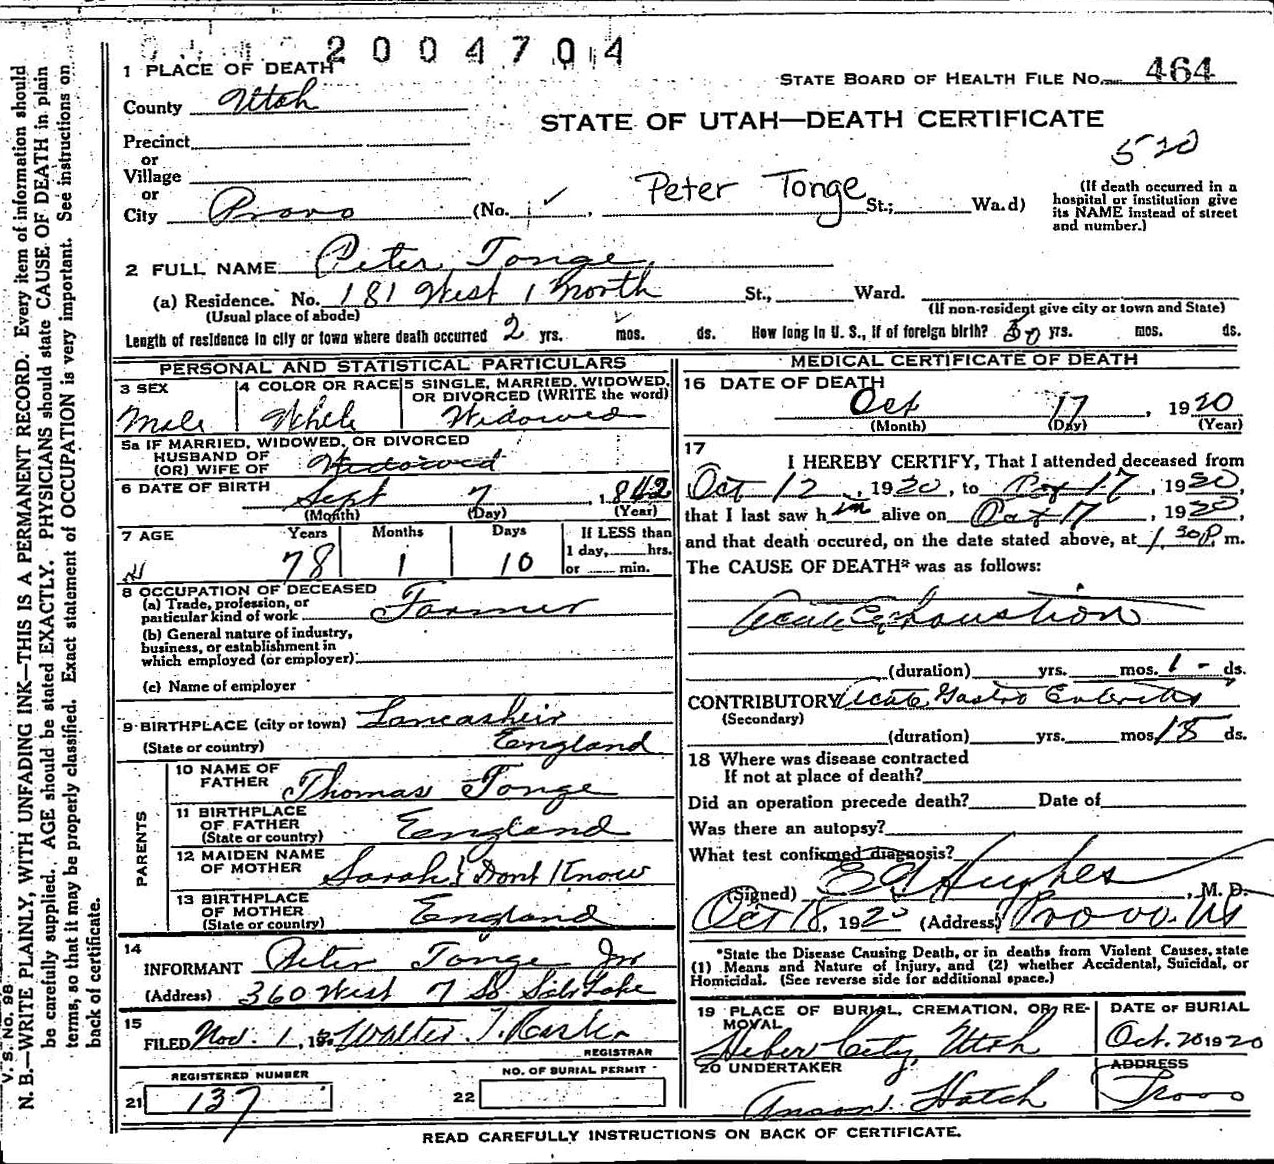 2004704
1 PLACE OF DEATH
STATE BOARD OF HEALTH FILE NO. 464
County Utah
STATE OF UTAH—DEATH CERTIFICATE
Precinct
520
or
Village
or
City Provo (No. , Peter Tonge St.; Ward)
(If death occurred in a
hospital or institution give
its NAME instead of street
and number.)
2 FULL NAME Peter Tonge
(a) Residence. No. 181 West 1 North St., Ward.
(Usual place of abode)
(If non-resident give city or town and State)
Length of residence in city or town where death occurred 2 yrs. mos. ds. How long in U. S., if of foreign birth? 50 yrs. mos. ds.
PERSONAL AND STATISTICAL PARTICULARS
3 SEX
Male
4 COLOR OR RACE
White
5 SINGLE, MARRIED, WIDOWED,
OR DIVORCED (WRITE the word)
Widowed
5a IF MARRIED, WIDOWED, OR DIVORCED
HUSBAND OF
(OR) WIFE OF Widowed
6 DATE OF BIRTH Sept 7, 1842
(Month) (Day) (Year)
7 AGE Years Months Days If LESS than
1 day, hrs.
78 1 10 or min.
8 OCCUPATION OF DECEASED
(a) Trade, profession, or
particular kind of work Farmer
(b) General nature of industry,
business, or establishment in
which employed (or employer)
(c) Name of employer
9 BIRTHPLACE (city or town) Lancasheir
(State or country) England
PARENTS
10 NAME OF
FATHER Thomas Tonge
11 BIRTHPLACE
OF FATHER England
(State or country)
12 MAIDEN NAME
OF MOTHER Sarah Dont Know
13 BIRTHPLACE
OF MOTHER England
(State or country)
14
INFORMANT Peter Tonge Jr
(Address) 360 West 7 So. Salt Lake
15
FILED Nov. 1, 19 Walter T.
REGISTRAR
REGISTERED NUMBER
21 137
NO. OF BURIAL PERMIT
22
MEDICAL CERTIFICATE OF DEATH
16 DATE OF DEATH
Oct 17, 1920
(Month) (Day) (Year)
17
I HEREBY CERTIFY, That I attended deceased from
Oct 12, 1920, to Oct 17, 1920,
that I last saw him alive on Oct 17, 1920,
and that death occured, on the date stated above, at 1 30 P. m.
The CAUSE OF DEATH* was as follows:
Acute Exhaustion
(duration) yrs. mos. 1 - ds.
CONTRIBUTORY Acute Gastro Enteritis
(Secondary)
(duration) yrs. mos. 15 ds.
18 Where was disease contracted
If not at place of death?
Did an operation precede death? Date of
Was there an autopsy?
What test confirmed diagnosis?
(Signed) Hughes, M. D.
Oct 18, 1920 (Address) Provo. Ut
*State the Disease Causing Death, or in deaths from Violent Causes, state
(1) Means and Nature of Injury, and (2) whether Accidental, Suicidal, or
Homicidal. (See reverse side for additional space.)
19 PLACE OF BURIAL, CREMATION, OR RE-
MOVAL
Heber City, Utah
DATE OF BURIAL
Oct. 20 1920
20 UNDERTAKER
Hatch
ADDRESS
Provo
READ CAREFULLY INSTRUCTIONS ON BACK OF CERTIFICATE.
V. S. No. 98
N. B.—WRITE PLAINLY, WITH UNFADING INK—THIS IS A PERMANENT RECORD. Every item of information should
be carefully supplied. AGE should be stated EXACTLY. PHYSICIANS should state CAUSE OF DEATH in plain
terms, so that it may be properly classified. Exact statement of OCCUPATION is very important. See instructions on
back of certificate.